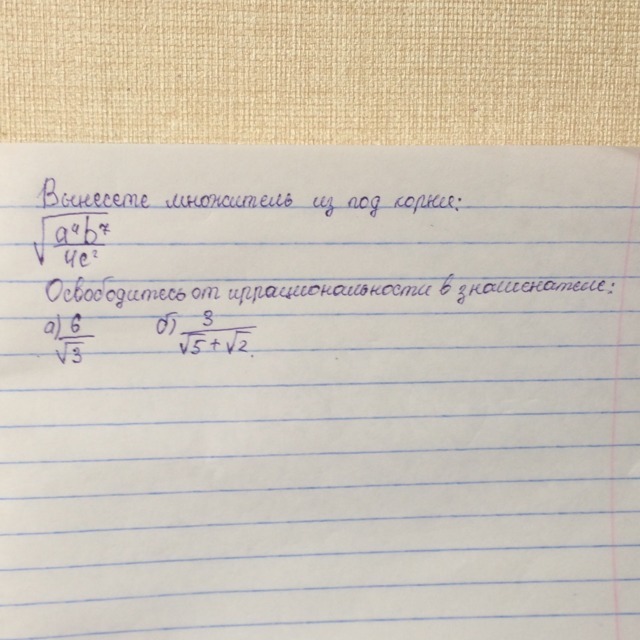 Вынесете множитель из под корня:
√(a⁴b⁷/4c²)
Освободитесь от иррациональности в знаменателе:
а) 6/√3 б) 3/(√5+√2).